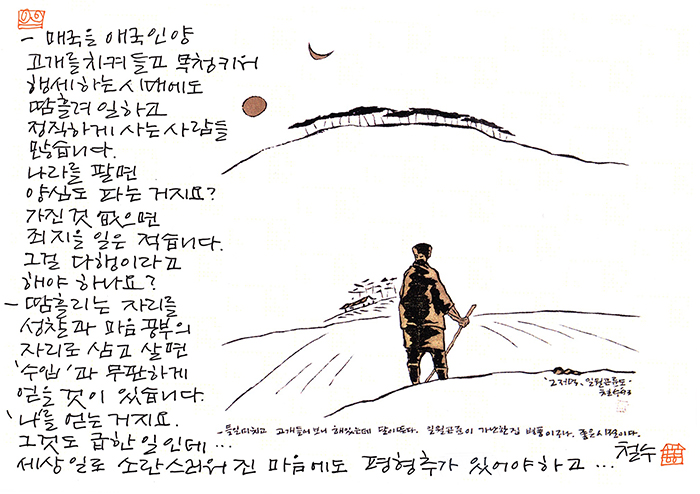 - 매국을 애국인양
고개를 치켜들고 목청키워
행세하는 시대에도
땀흘려 일하고
정직하게 사는 사람들
많습니다.
나라를 팔면
양심도 파는 거지요?
가진것 없으면
죄지을 일은 적습니다.
그걸 다행이라고
해야 하나요?
- 땀흘리는 자리를
성찰과 마음공부의
자리로 삼고 살면
'수입'과 무관하게
얻을 것이 있습니다.
'나'를 얻는거지요.
그것도 급한 일인데...
세상 일로 소란스러워진 마음에도 평형추가 있어야하고... 철수
- 들일마치고 고개들어보니 해있는데 달이뜬다. 일월곤륜이 가난한집 병풍이구나. 좋은시절이다.